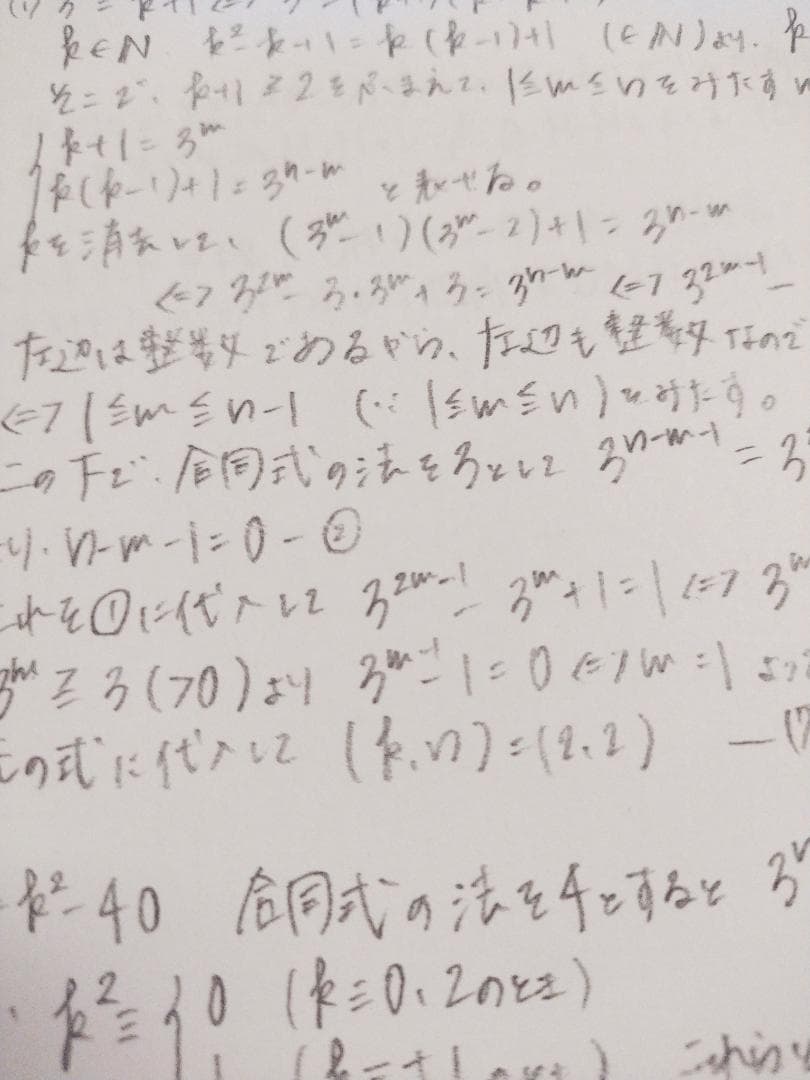 k∈N k²-k+1=k(k-1)+1 (∈N)より、k
k+1≧2をふまえて、1≦m≦nをみたす
k+1=3^m
k(k-1)+1=3^{n-m} と表せる。
kを消去して、(3^m-1)(3^m-2)+1=3^{n-m}
⇔3^{2m}-3・3^m+3=3^{n-m}⇔3^{2m-1}-
左辺は整数であるから、左辺も整数なので
⇔1≦m≦n-1 (∵1≦m≦n)をみたす。
この下で、合同式の法を3として 3^{n-m-1}=3
り、n-m-1=0-②
これを①に代入して 3^{2m-1}-3^m+1=1⇔3^m
3^m≧3(>0)より 3^{m-1}-1=0⇔m=1
の式に代入して (k,n)=(2,2)
k²-40 合同式の法を4とすると 3^n
k²≡{0 (k≡0、2のとき)
1 (k=±1のとき) これら